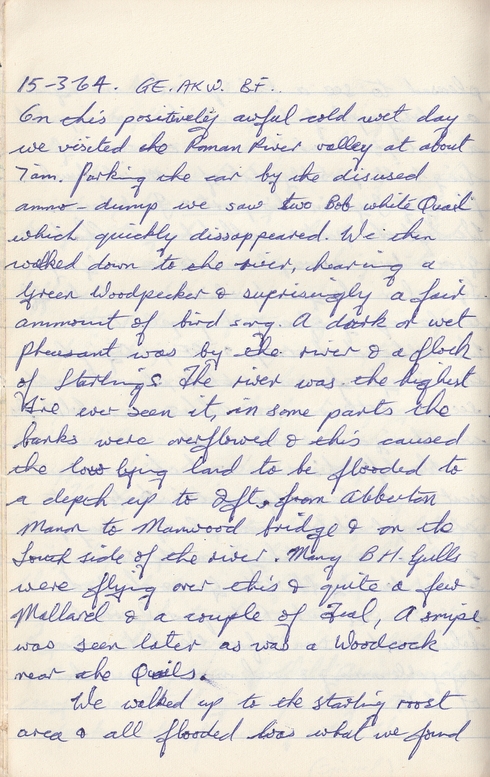 15-3-64. GE. AKW. BF.
On this positively awful cold wet day
we visited the Roman River valley at about
7am. Parking the car by the disused
ammo-dump we saw two Bob white Quail
which quickly dissappeared. We then
walked down to the river, hearing a
Green Woodpecker & suprisingly a fair
ammount of bird song. A dark or wet
Pheasant was by the river & a flock
of Starlings. The river was the highest
I've ever seen it, in some parts the
banks were overflowed & this caused
the low lying land to be flooded to
a depth up to 2ft. from Abberton
Manor to Manwood bridge & on the
South side of the river. Many B.H. Gulls
were flying over this & quite a few
Mallard & a couple of Teal, A snipe
was seen later as was a Woodcock
near the Quails.
We walked up to the starling roost
area & all flooded was what we found